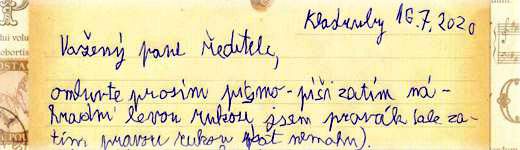 Kladruby 16.7.2020
Vážený pane ředitele,
omluvte prosím písmo - píši zatím ná-
hradní levou rukou, jsem pravák (ale za-
tím pravou rukou psát nemohu).